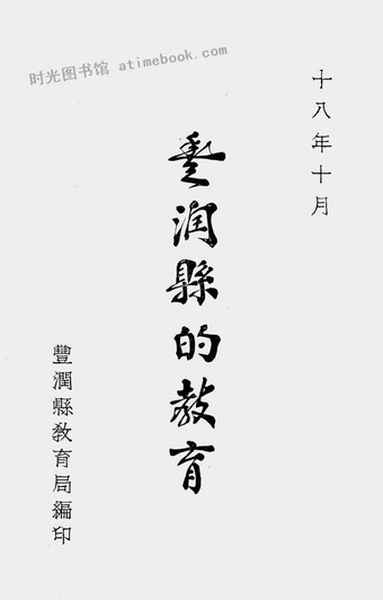 时光图书馆 atimebook.com
十八年十月
豐润縣的敎育
豐潤縣敎育局編印